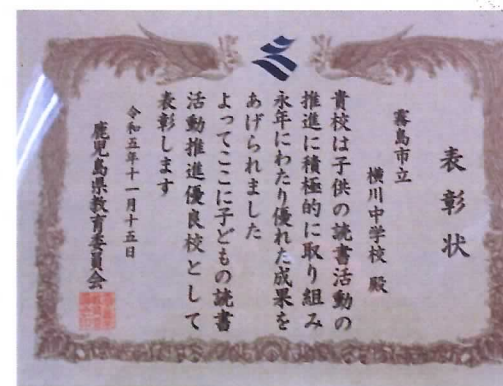 表彰状
霧島市立
横川中学校 殿
貴校は子供の読書活動の
推進に積極的に取り組み
永年にわたり優れた成果を
あげられました
よってここに子どもの読書
活動推進優良校として
表彰します
令和五年十一月十五日
鹿児島県教育委員会